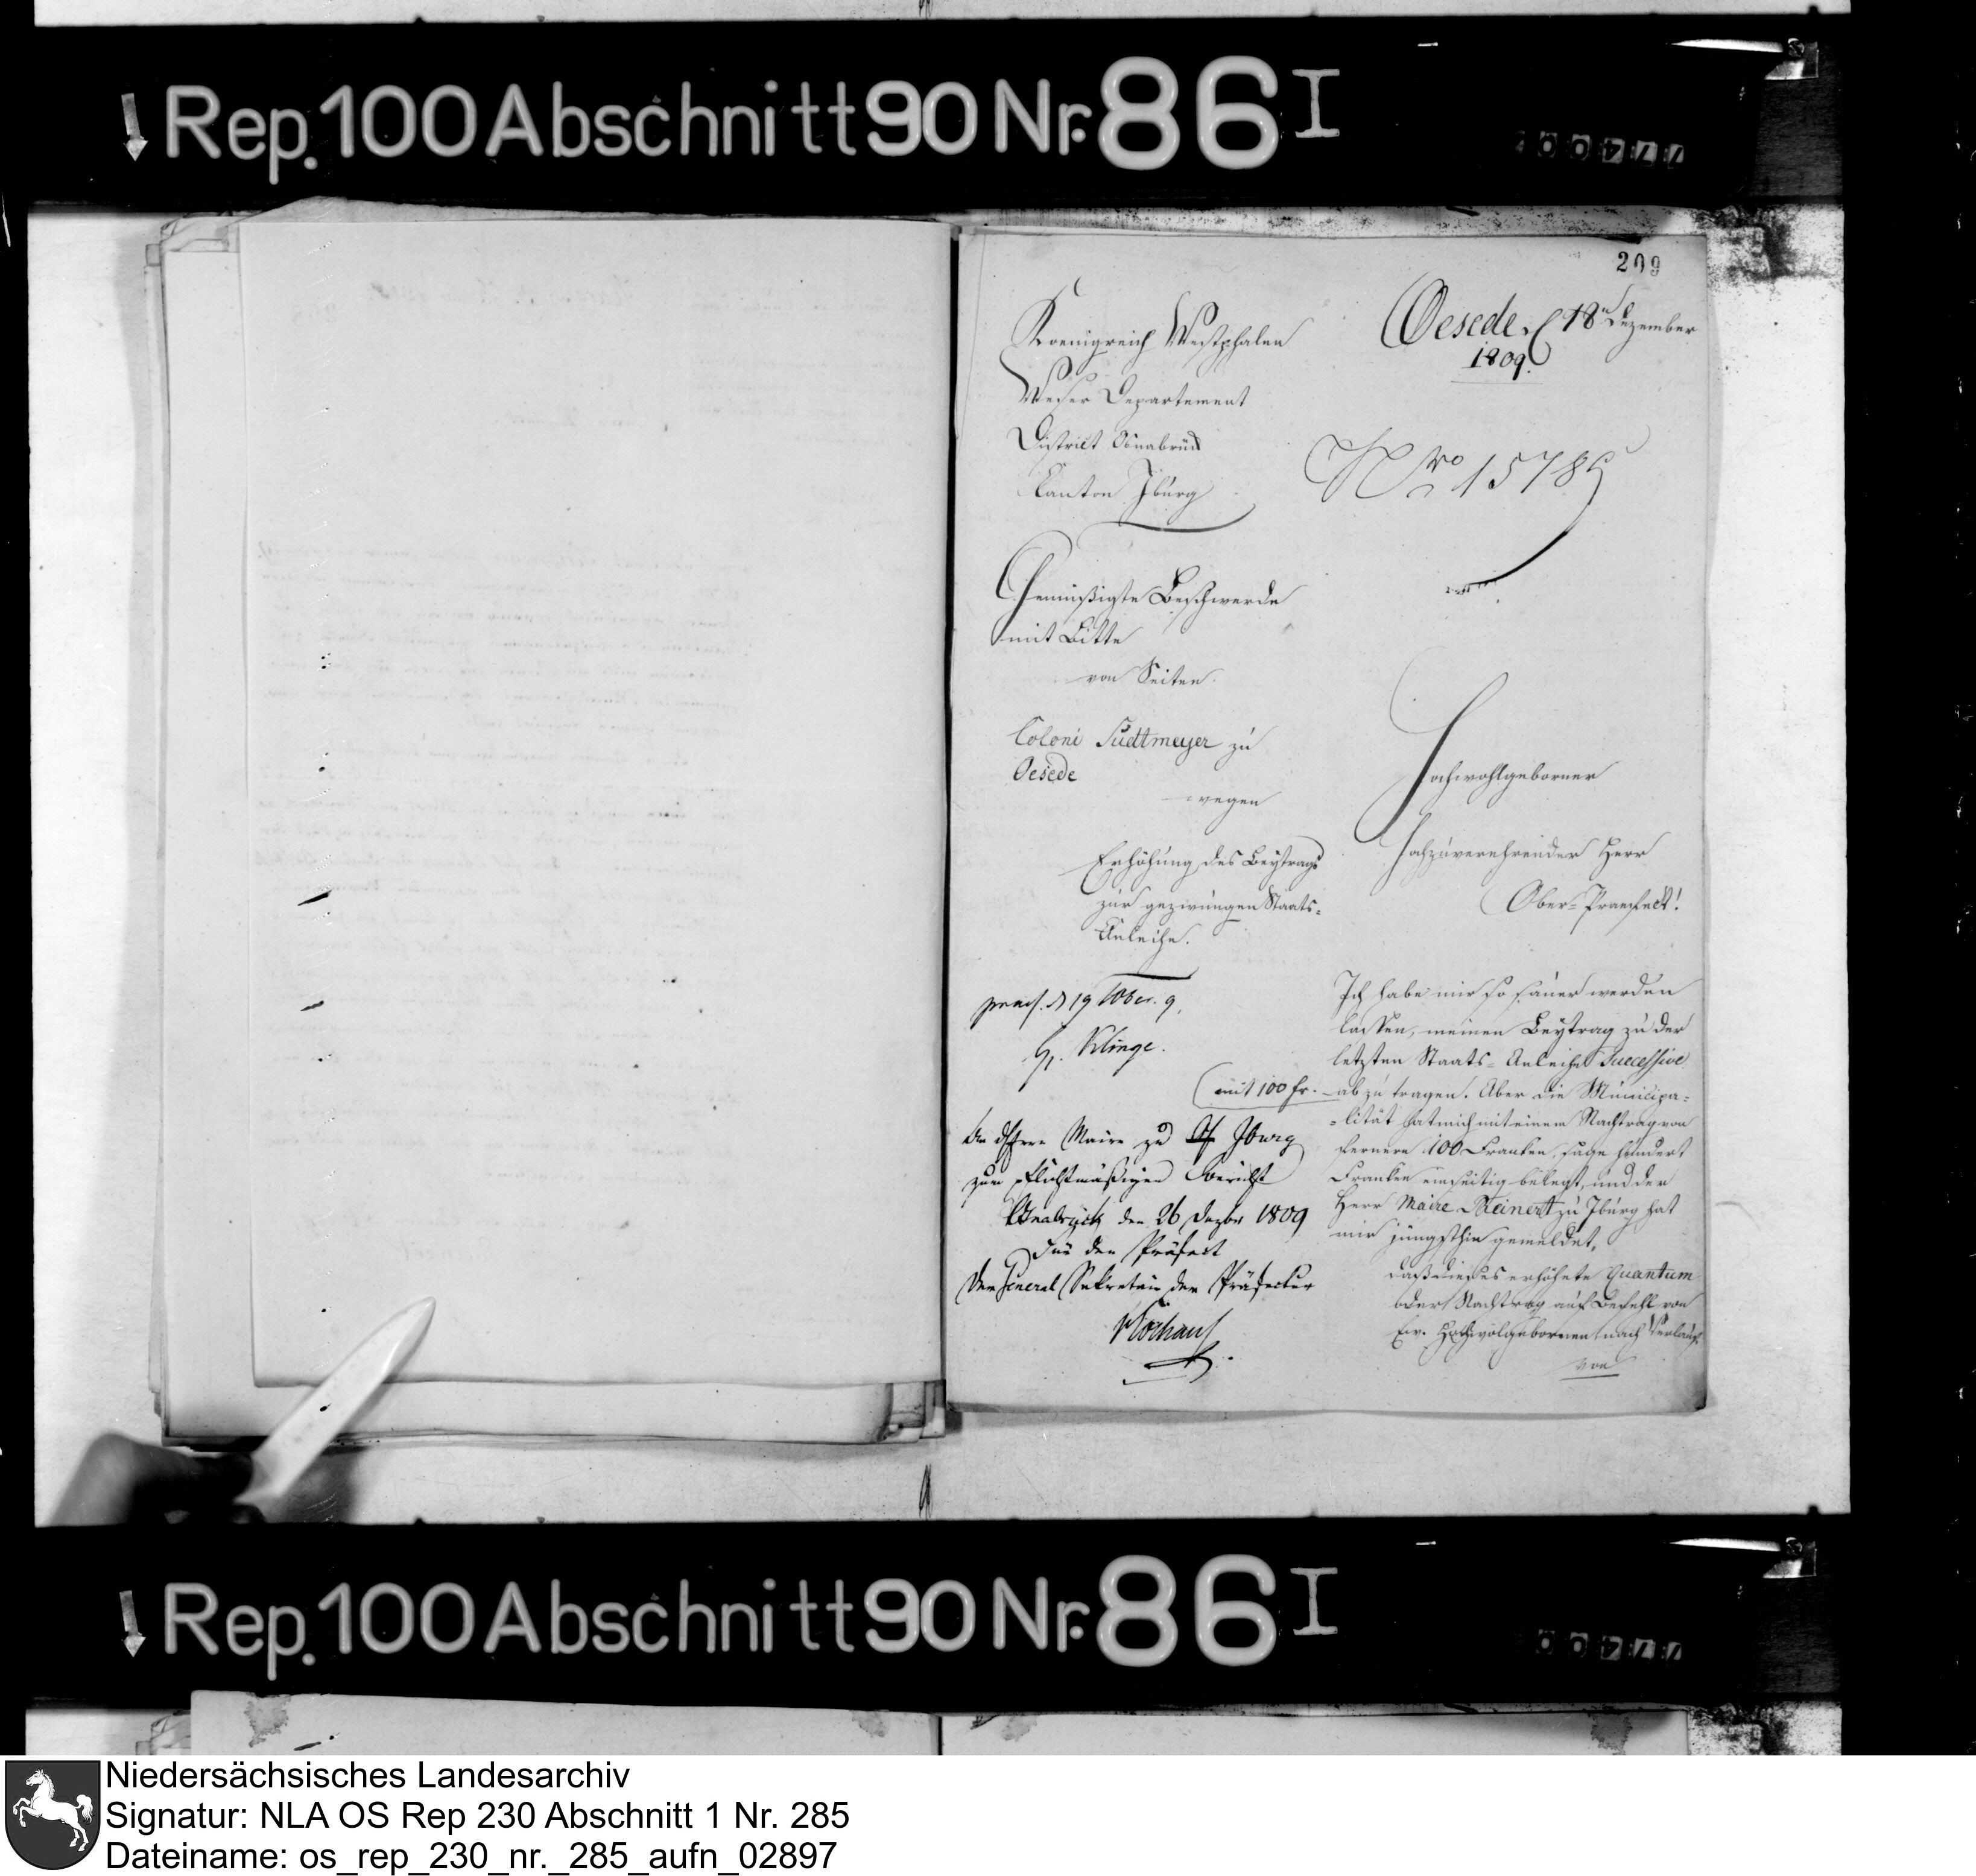 Rep. 100 Abschnitt 90 Nr. 86 I
209
Koenigreich Westphalen
Weser Departement
District Osnabrück
Canton Iburg
Oesede d 18n Dezember
1809.
Nro 15789
Gemüßigte Beschwerde
mit Bitte
von Seiten
Coloni Sudtmeyer zu
Oesede
wegen
Erhöhung des Beytrags
zur gezwungen Staats-
Anleihe.
praes. d 19 Xber. 9.
Klinge.
Hochwohlgeborner
Hochzuverehrender Herr
Ober-Praefect!
Ich habe mir so sauer werden
lassen, meinen Beytrag zu der
letzten Staats-Anleihe Successive
(mit 100 fr. abzutragen. Aber die Municipa-
-lität hat mich mit einem Nachtrag von
fernern 100 Franken, sage hundert
Franken einseitig belegt, und der
Herr Maire Meinert zu Iburg hat
mir jüngsthin gemeldet,
daß dieses erhöhete Quantum
oder Nachtrag auf Befehl von
Ew. Hochwolgebornen nach Verlauf
von
An Herrn Maire zu Iburg
zum pflichtmäßigen Bericht
Osnabrück den 26 Dezbr 1809
Für den Präfect
Der General Sekretair der Präfectur
Rep. 100 Abschnitt 90 Nr. 86 I
Niedersächsisches Landesarchiv
Signatur: NLA OS Rep 230 Abschnitt 1 Nr. 285
Dateiname: os_rep_230_nr._285_aufn_02897